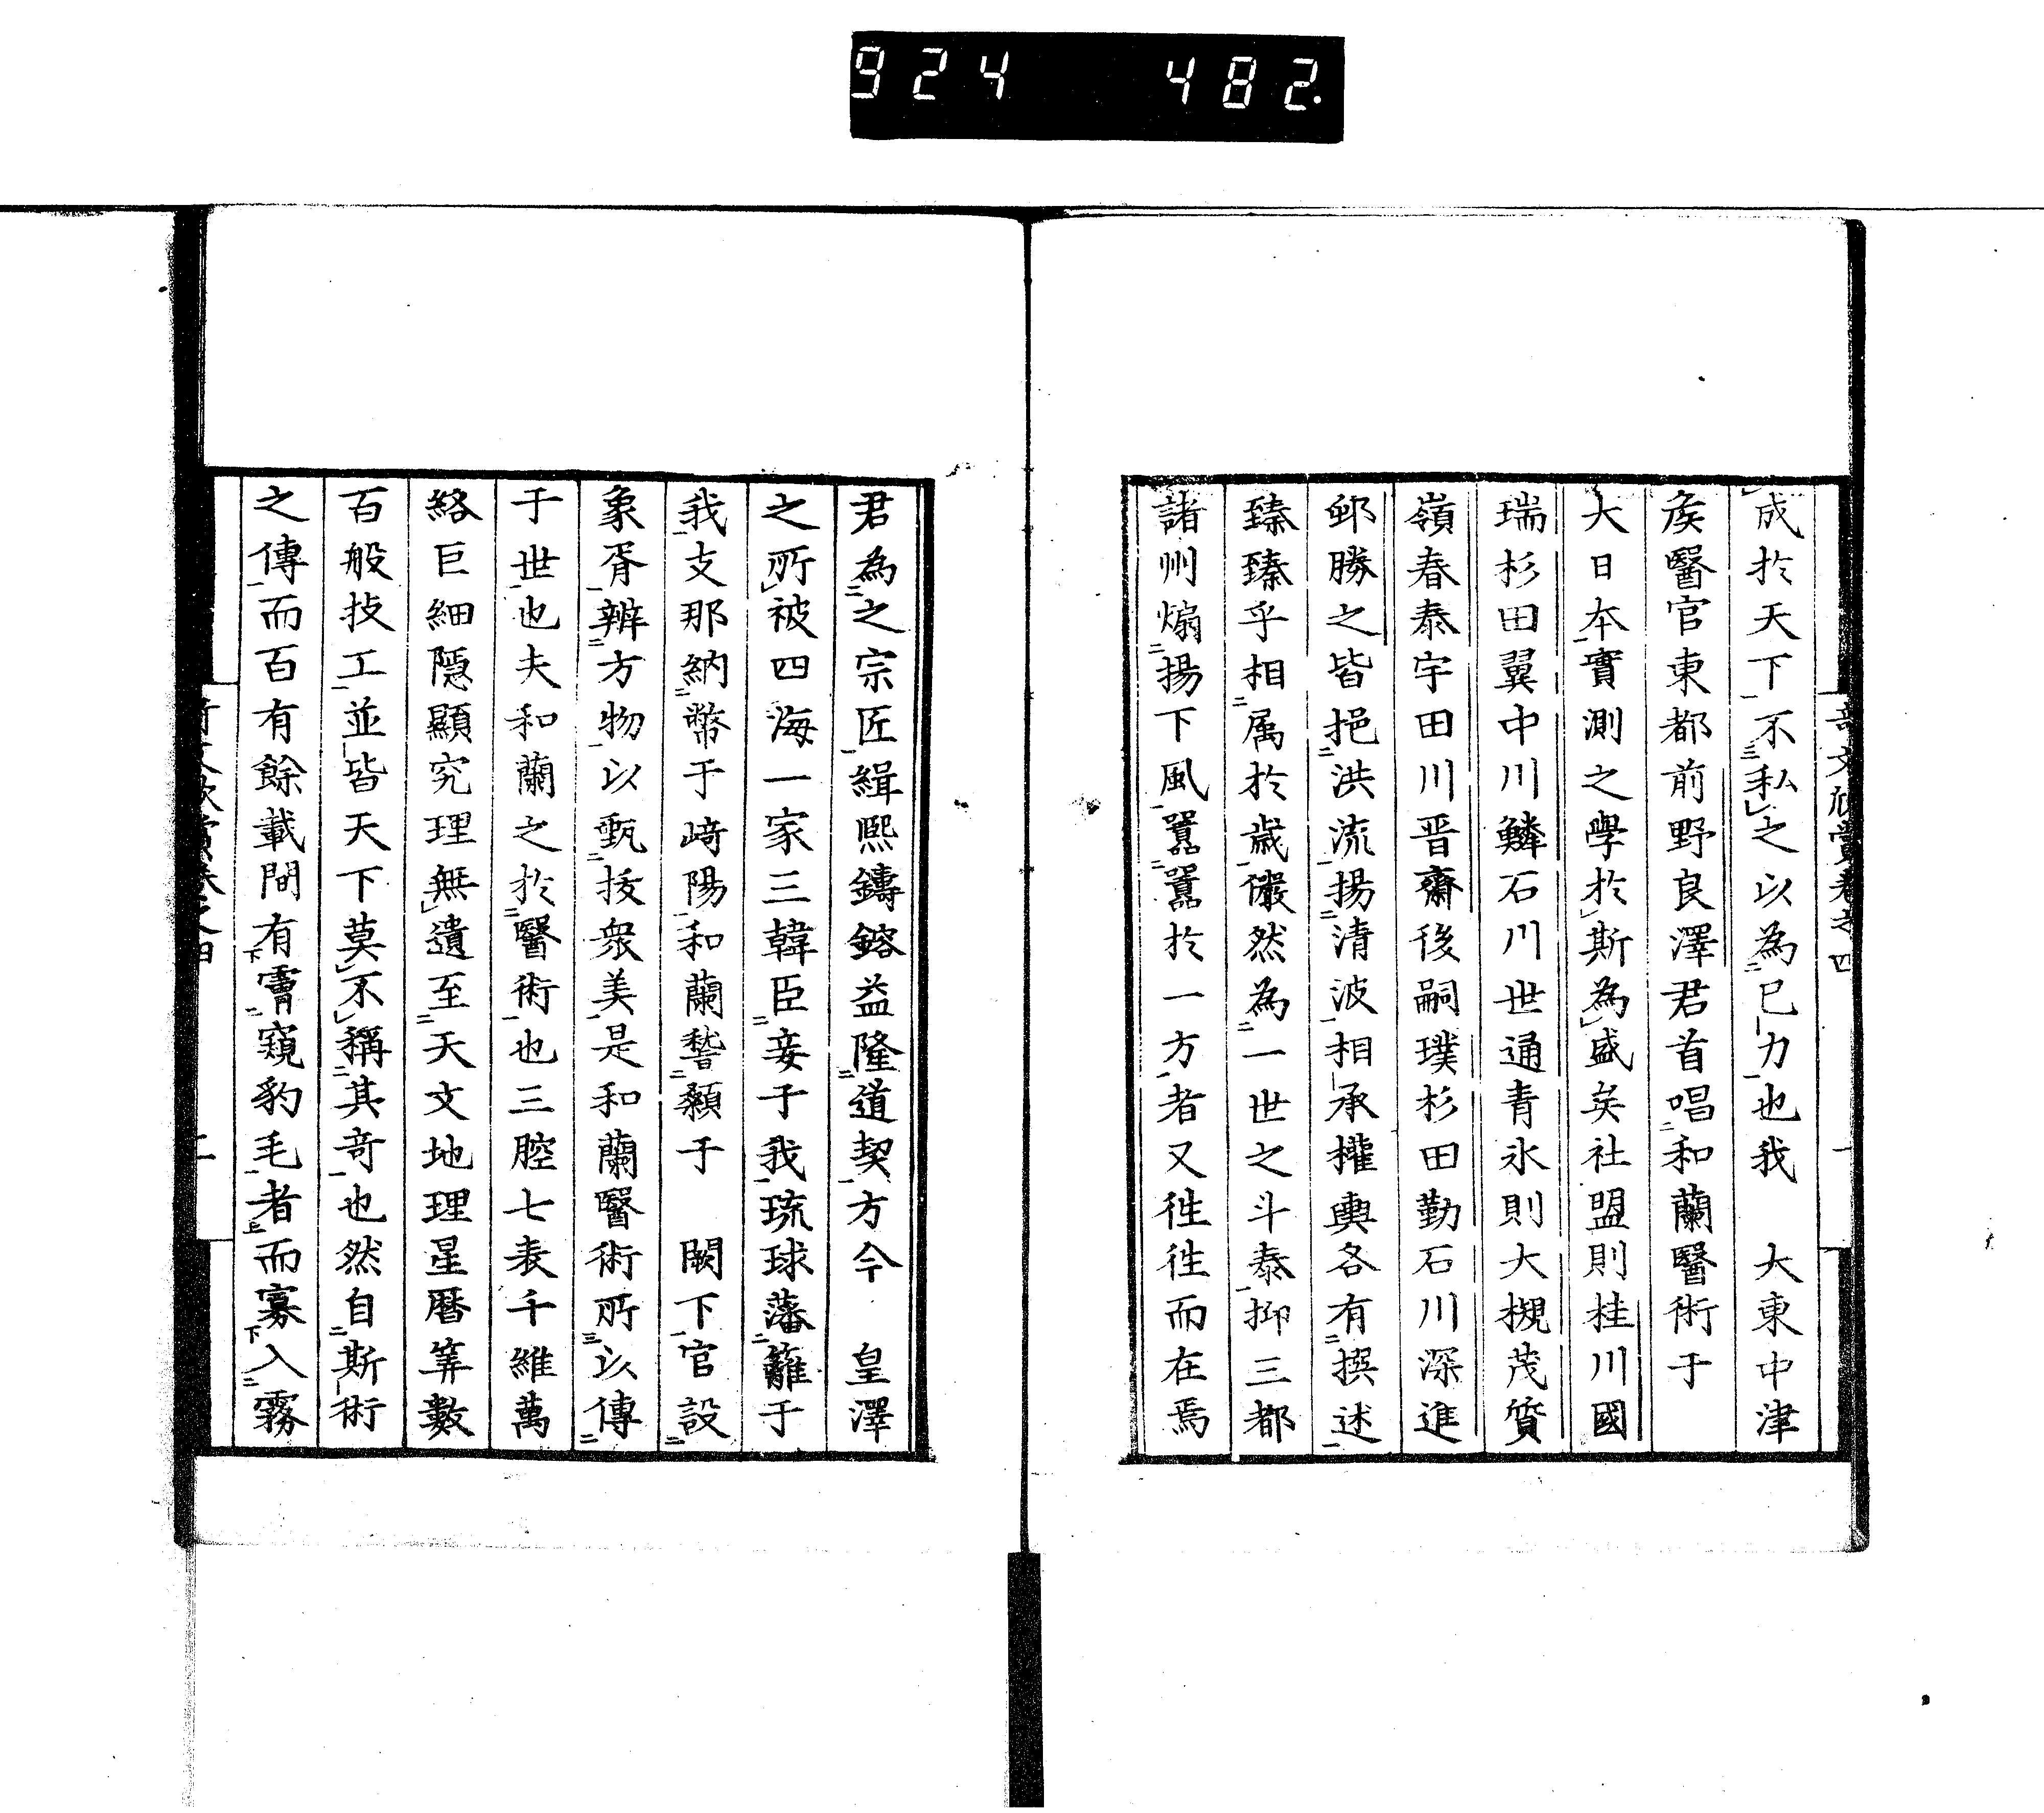 924 482.
奇文欣賞卷之四 一
成於天下不私之以為已力也我 大東中津
矦醫官東都前野良澤君首唱和蘭醫術于
大日本實測之學於斯為盛矣社盟則桂川國
瑞杉田翼中川鱗石川世通青氷則大槻茂質
嶺春泰宇田川晋齋後嗣璞杉田勤石川深進
邨勝之皆挹洪流揚清波相承權輿各有撰述
臻臻乎相属於歳儼然為一世之斗泰抑三都
諸州煽揚下風囂囂於一方者又徃徃而在焉
君為之宗匠緝熈鑄鎔益隆道契方今 皇澤
之所被四海一家三韓臣妾于我琉球藩籬于
我支那納幣于﨑陽和蘭䭫顙于 闕下官設
象胥辨方物以甄抜衆美是和蘭醫術所以傳
于世也夫和蘭之於醫術也三腔七表千維萬
絡巨細隱顯究理無遺至天文地理星暦筭數
百般技工並皆天下莫不稱其竒也然自斯術
之傳而百有餘載間有霤窺豹毛者而寡入霧
奇文欣賞卷之四 二